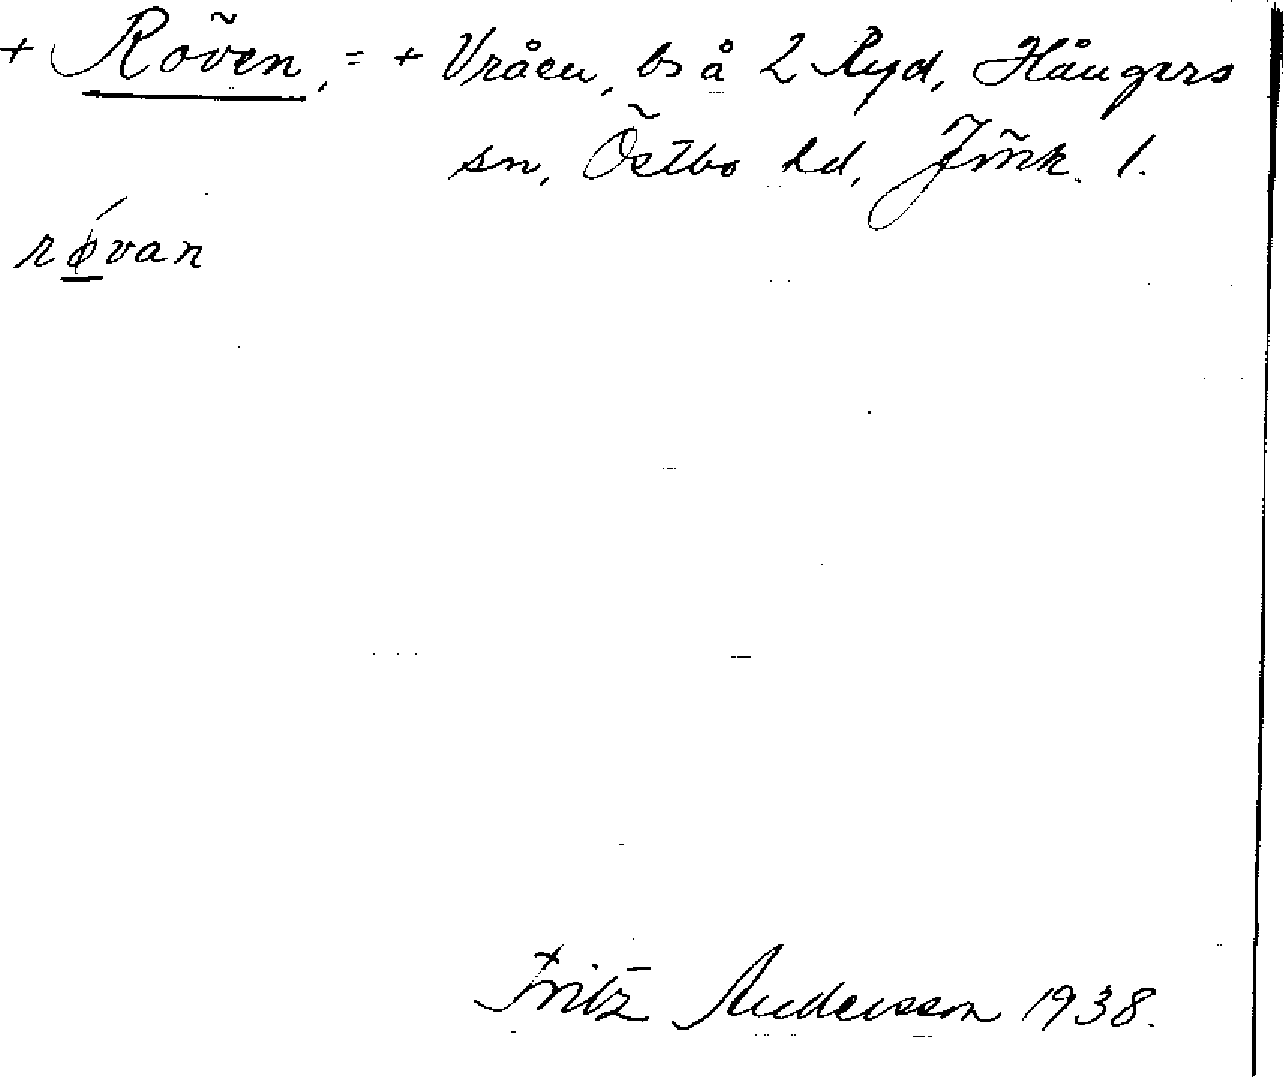 + Röven, = + Vråen, bs å 2 Ryd, Hångers
sn, Östbo hd, Jönk. l.
røvan
Fritz Andersson 1938.